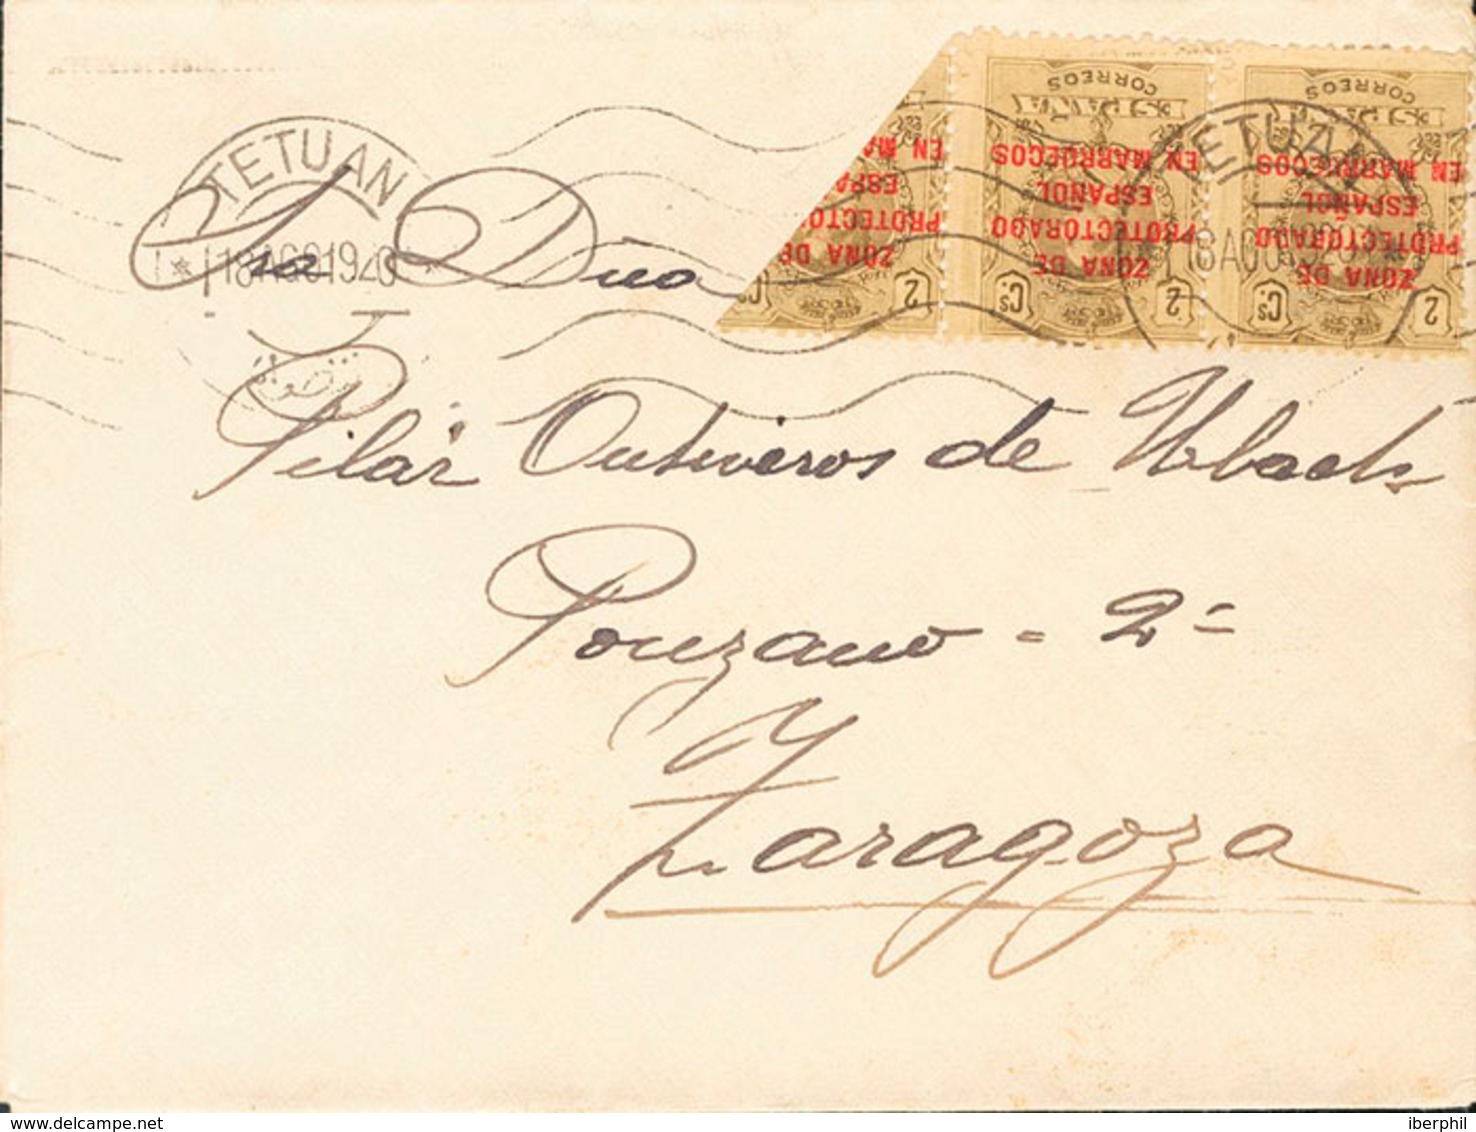 CORREOS
CORREOS
EN MA
EN MARRUECOS
EN MARRUECOS
ESPA
ESPAÑOL
ESPAÑOL
PROTECTO
PROTECTORADO
PROTECTORADO
ZONA DE
ZONA DE
ZONA DE
2
2 Cs
2 Cs
TETUAN
TETUAN
18 AGO 1920
18 AGO
Sra Dña
Pilar Ontiveros de
Ponzano - 2º
Zaragoza
delcampe.net
iberphil